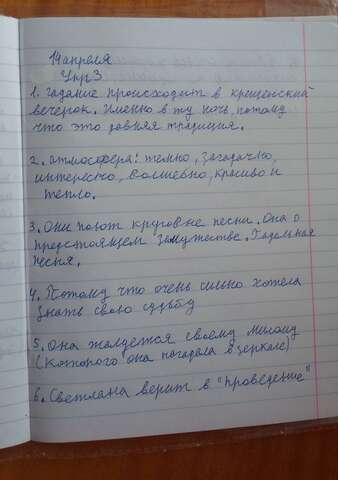 14 апреля
Упр 3
1. гадание происходит в крещенский
вечерок. Именно в ту ночь, потому
что это давняя традиция.
2. атмосфера: темно, загадочно,
интересно, волшебно, красиво и
тепло.
3. Они поют круговые песни. Она о
предстоящем замужестве. Гадальная
песня.
4. Потому что очень сильно хотела
знать свою судьбу
5. Она жалуется своему милому
(которого она нагадала в зеркале)
6. Светлана верит в "проведение"